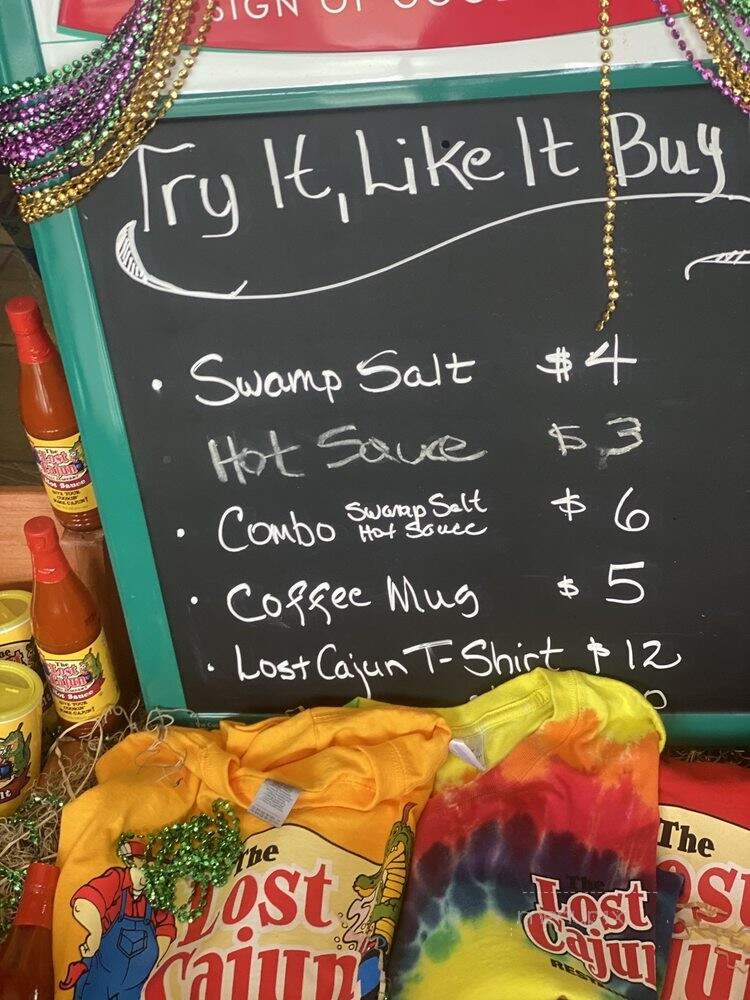 SIGN OF
Try It, Like It Buy
• Swamp Salt $4
Hot Sauce $3
• Combo Swamp Salt Hot Sauce $6
• Coffee Mug $5
• Lost Cajun T-Shirt $12
The
Lost
Cajun
Hot Sauce
The
Lost
Cajun
Hot Sauce
The
Lost
Cajun
The
Lost
Cajun
The